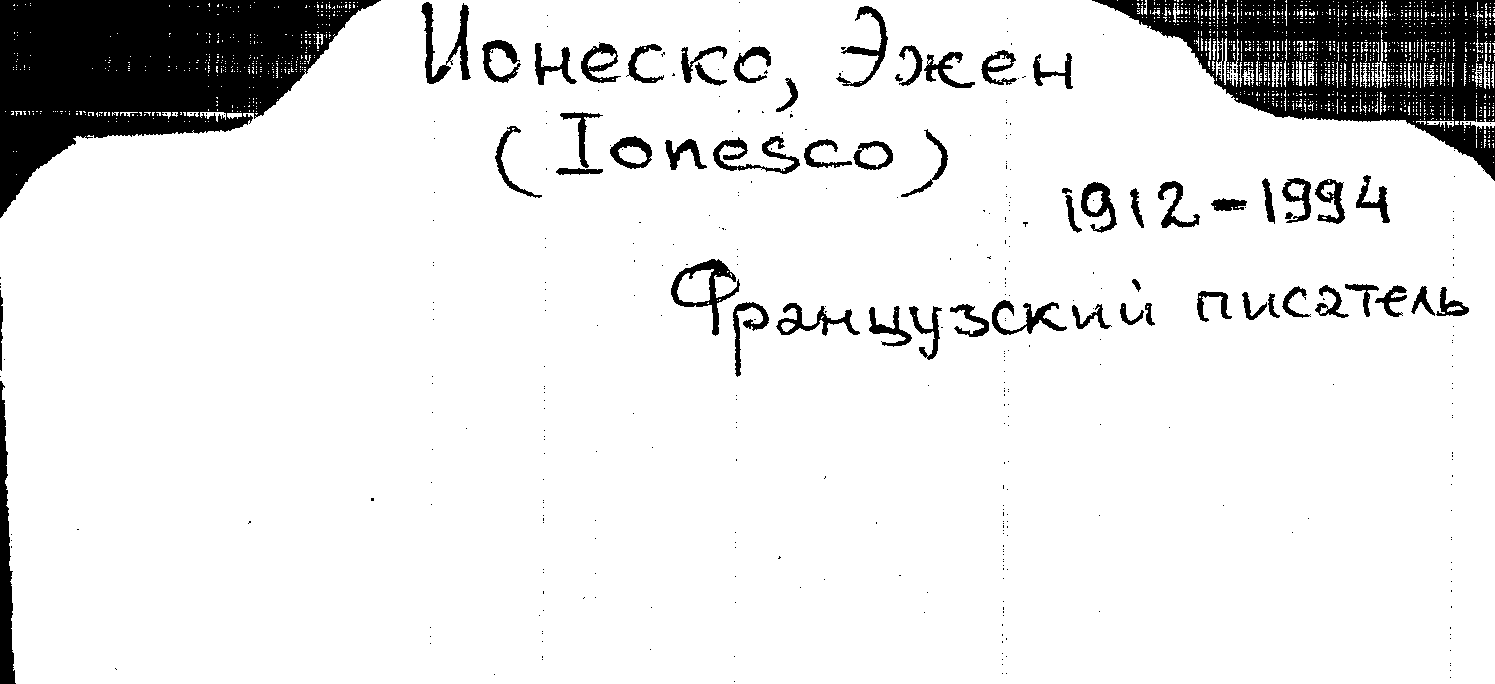 Ионеско, Эжен
(Ionesco)
1912-1994
Французский писатель